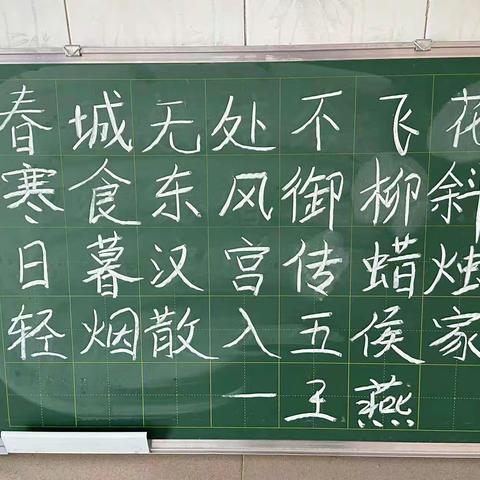 春城无处不飞花
寒食东风御柳斜
日暮汉宫传蜡烛
轻烟散入五侯家
一王燕